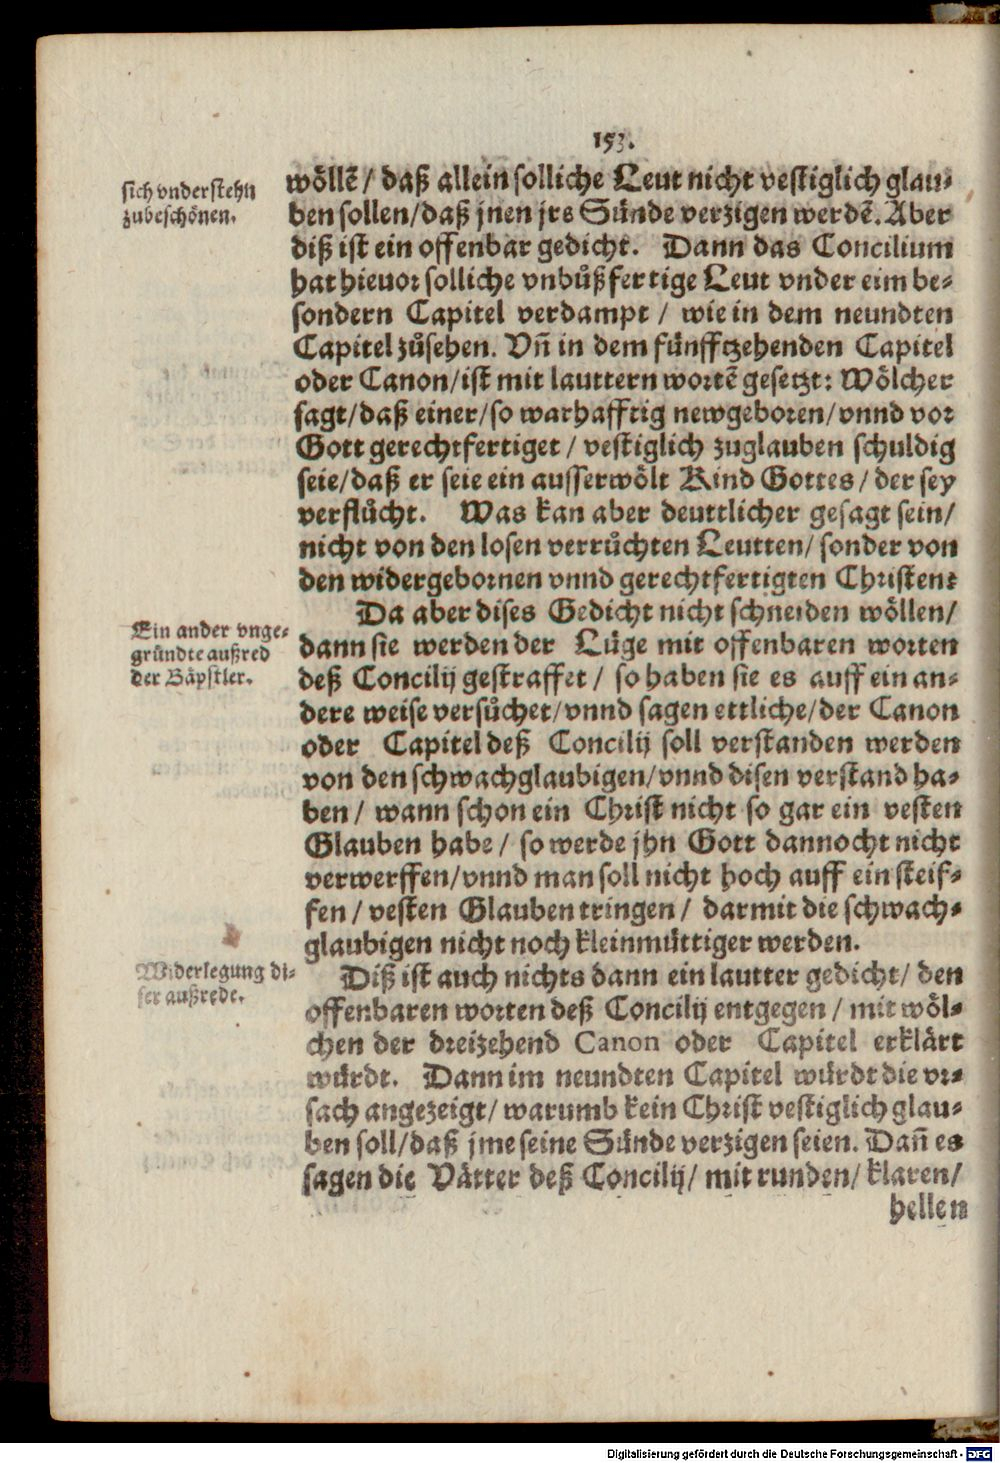 153.
sich vnderstehn
zubeschönen.
wöllẽ / daß allein solliche Leut nicht vestiglich glau-
ben sollen/daß jnen jrs Sünde verzigen werdẽ. Aber
diß ist ein offenbar gedicht. Dann das Concilium
hat hieuor solliche vnbůßfertige Leut vnder eim be-
sondern Capitel verdampt / wie in dem neundten
Capitel zůsehen. Vñ in dem fünfftzehenden Capitel
oder Canon/ist mit lauttern wortẽ gesetzt: Wölcher
sagt/daß einer/so warhafftig newgeboren/vnnd vor
Gott gerechtfertiget / vestiglich zuglauben schuldig
seie/daß er seie ein ausserwölt Kind Gottes / der sey
verflůcht. Was kan aber deuttlicher gesagt sein/
nicht von den losen verrůchten Leutten/ sonder von
den widergebornen vnnd gerechtfertigten Christen?
Ein ander vnge-
gründte außred
der Bäpstler.
Da aber dises Gedicht nicht schneiden wöllen/
dann sie werden der Lüge mit offenbaren worten
deß Concilij gestraffet / so haben sie es auff ein an-
dere weise versůchet/vnnd sagen ettliche/der Canon
oder Capitel deß Concilij soll verstanden werden
von den schwachglaubigen/vnnd disen verstand ha-
ben / wann schon ein Christ nicht so gar ein vesten
Glauben habe / so werde jhn Gott dannocht nicht
verwerffen/vnnd man soll nicht hoch auff ein steif-
fen / vesten Glauben tringen / darmit die schwach-
glaubigen nicht noch kleinmüttiger werden.
Widerlegung di-
ser außrede.
Diß ist auch nichts dann ein lautter gedicht/ den
offenbaren worten deß Concilij entgegen / mit wöl-
chen der dreizehend Canon oder Capitel erklärt
würdt. Dann im neundten Capitel würdt die vr-
sach angezeigt/ warumb kein Christ vestiglich glau-
ben soll/daß jme seine Sünde verzigen seien. Dañ es
sagen die Vätter deß Concilij/ mit runden/ klaren/
hellen
Digitalisierung gefördert durch die Deutsche Forschungsgemeinschaft - DFG